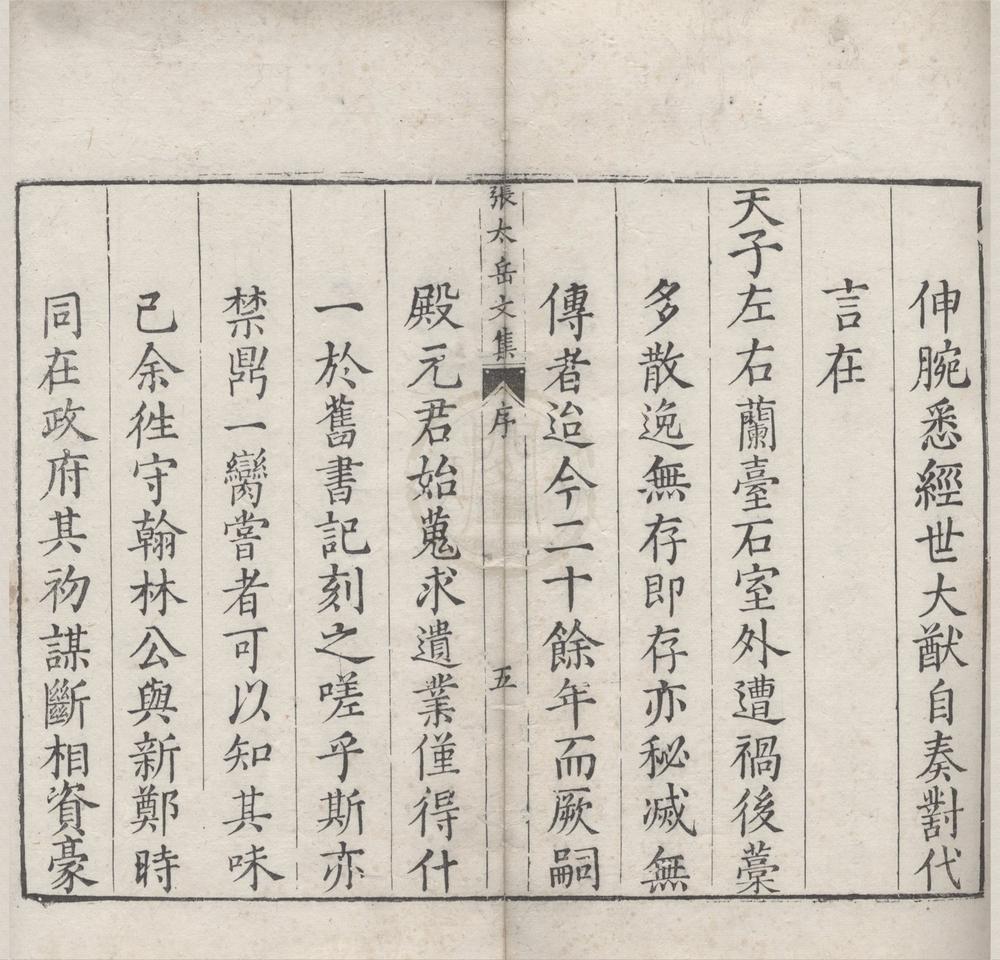 伸腕悉經世大猷自奏對代
言在
天子左右蘭臺石室外遭禍後藁
多散逸無存即存亦秘滅無
傳者迨今二十餘年而厥嗣
張太岳文集 序 五
殿元君始蒐求遺業僅得什
一於舊書記刻之嗟乎斯亦
禁鼎一臠嘗者可以知其味
已余徃守翰林公與新鄭時
同在政府其初謀斷相資豪